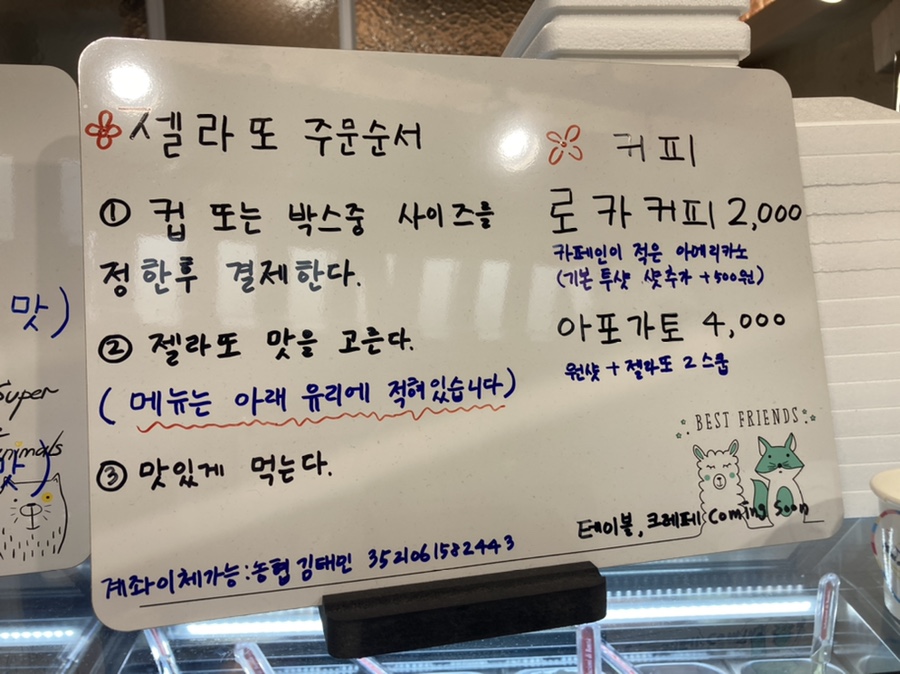 젤라또 주문순서
① 컵 또는 박스중 사이즈를
정한후 결제한다.
② 젤라또 맛을 고른다.
(메뉴는 아래 유리에 적혀있습니다)
③ 맛있게 먹는다.
계좌이체가능:농협 김태민 3521061582443
커피
로카커피 2,000
카페인이 적은 아메리카노
(기본 투샷 샷추가 +500원)
아포가토 4,000
원샷 + 젤라또 2스쿱
BEST FRIENDS
테이블, 크레페 Coming Soon
맛)
Super
animals